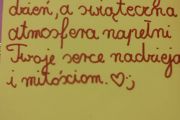 dzień, a świąteczna
atmosfera napełni
Twoje serce nadzieją
i miłościom.♡;